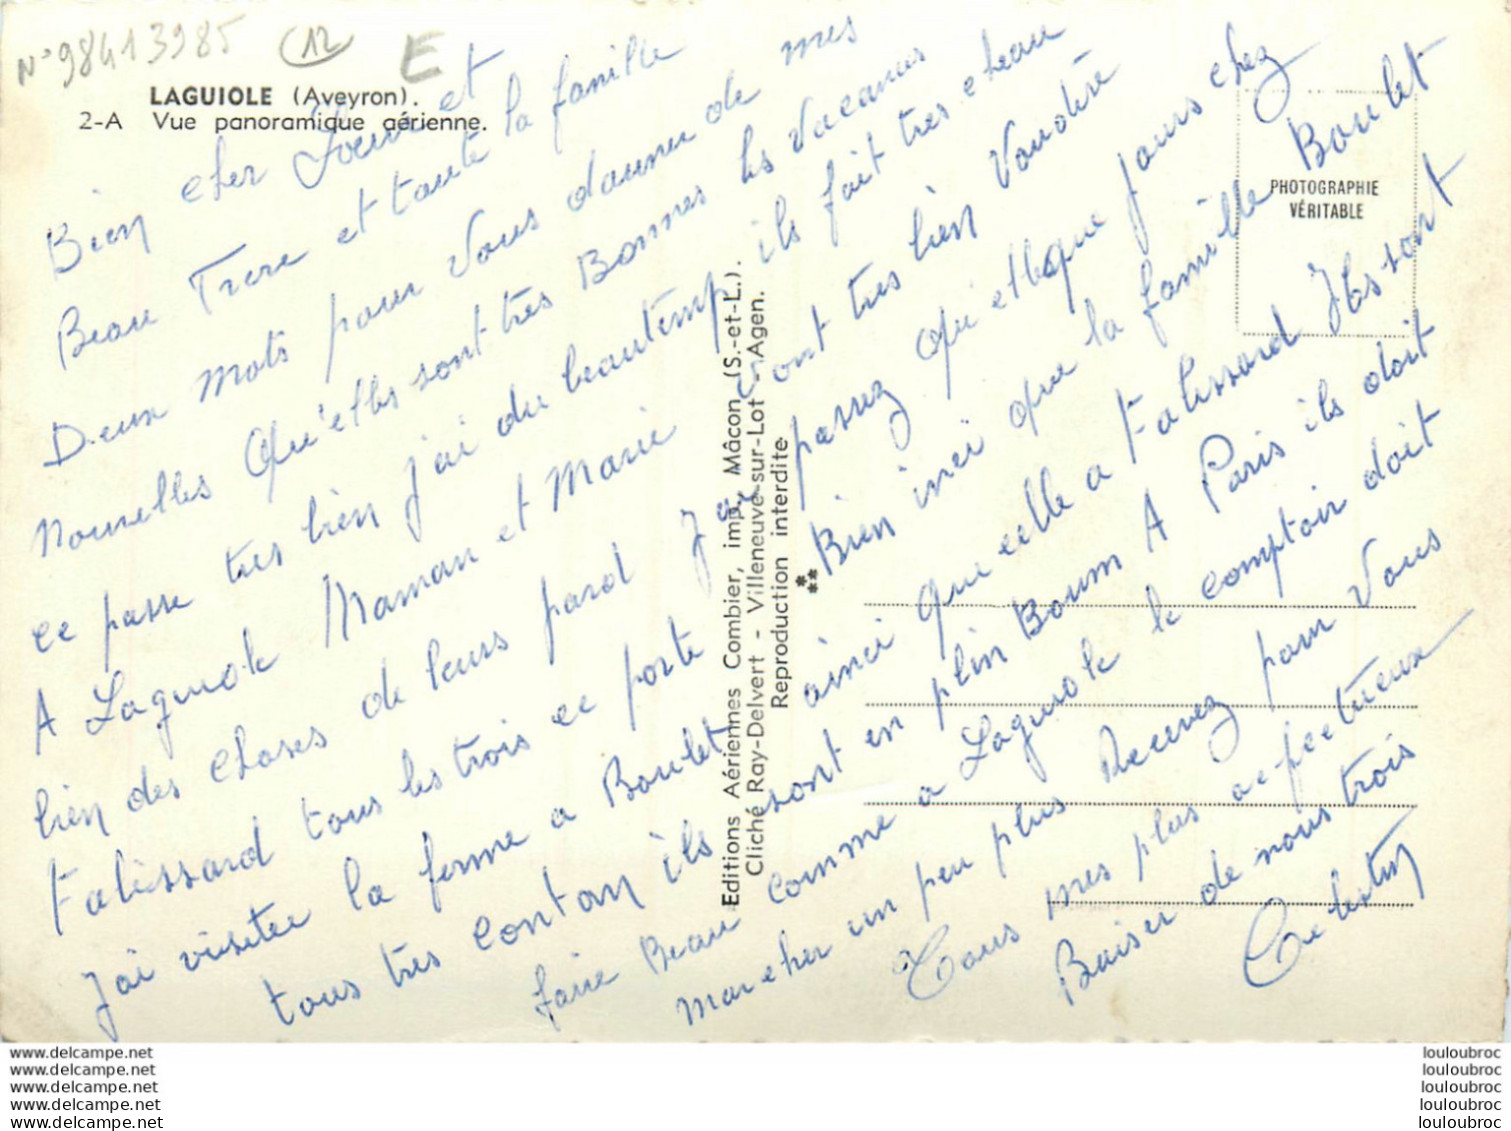 N° 98413985 12 E
LAGUIOLE (Aveyron).
2-A Vue panoramique aérienne.
PHOTOGRAPHIE
VÉRITABLE
Editions Aériennes Combier, imp. Mâcon (S.-et-L.).
Cliché Ray-Delvert - Villeneuve-sur-Lot - Agen.
Reproduction interdite
Bien cher et
Beau Frere et toute la famille
Deux mots pour Vous donner de mes
Nouvelles Qu'elles sont très Bonnes les Vacances
ce passe tres bien j'ai du beautemp ils fait tres cheau
A Laguiole Maman et Marie vont tres bien Voudré
bien des choses de leurs pard J'ai passez quelque jours chez
Falissard tous les trois ce porte Bien inci que la famille Boulet
J'ai visitée la ferme a Boulet ainci que celle a Falissard Ils sont
tous très contan ils sont en plin Boum A Paris ils doit
faire Beau comme a Laguiole le comptoir doit
marcher un peu plus Recevez pour Vous
Tous mes plus acfectueux
Baiser de nous trois
Celestin
www.delcampe.net
www.delcampe.net
www.delcampe.net
www.delcampe.net
www.delcampe.net
louloubroc
louloubroc
louloubroc
louloubroc
louloubroc